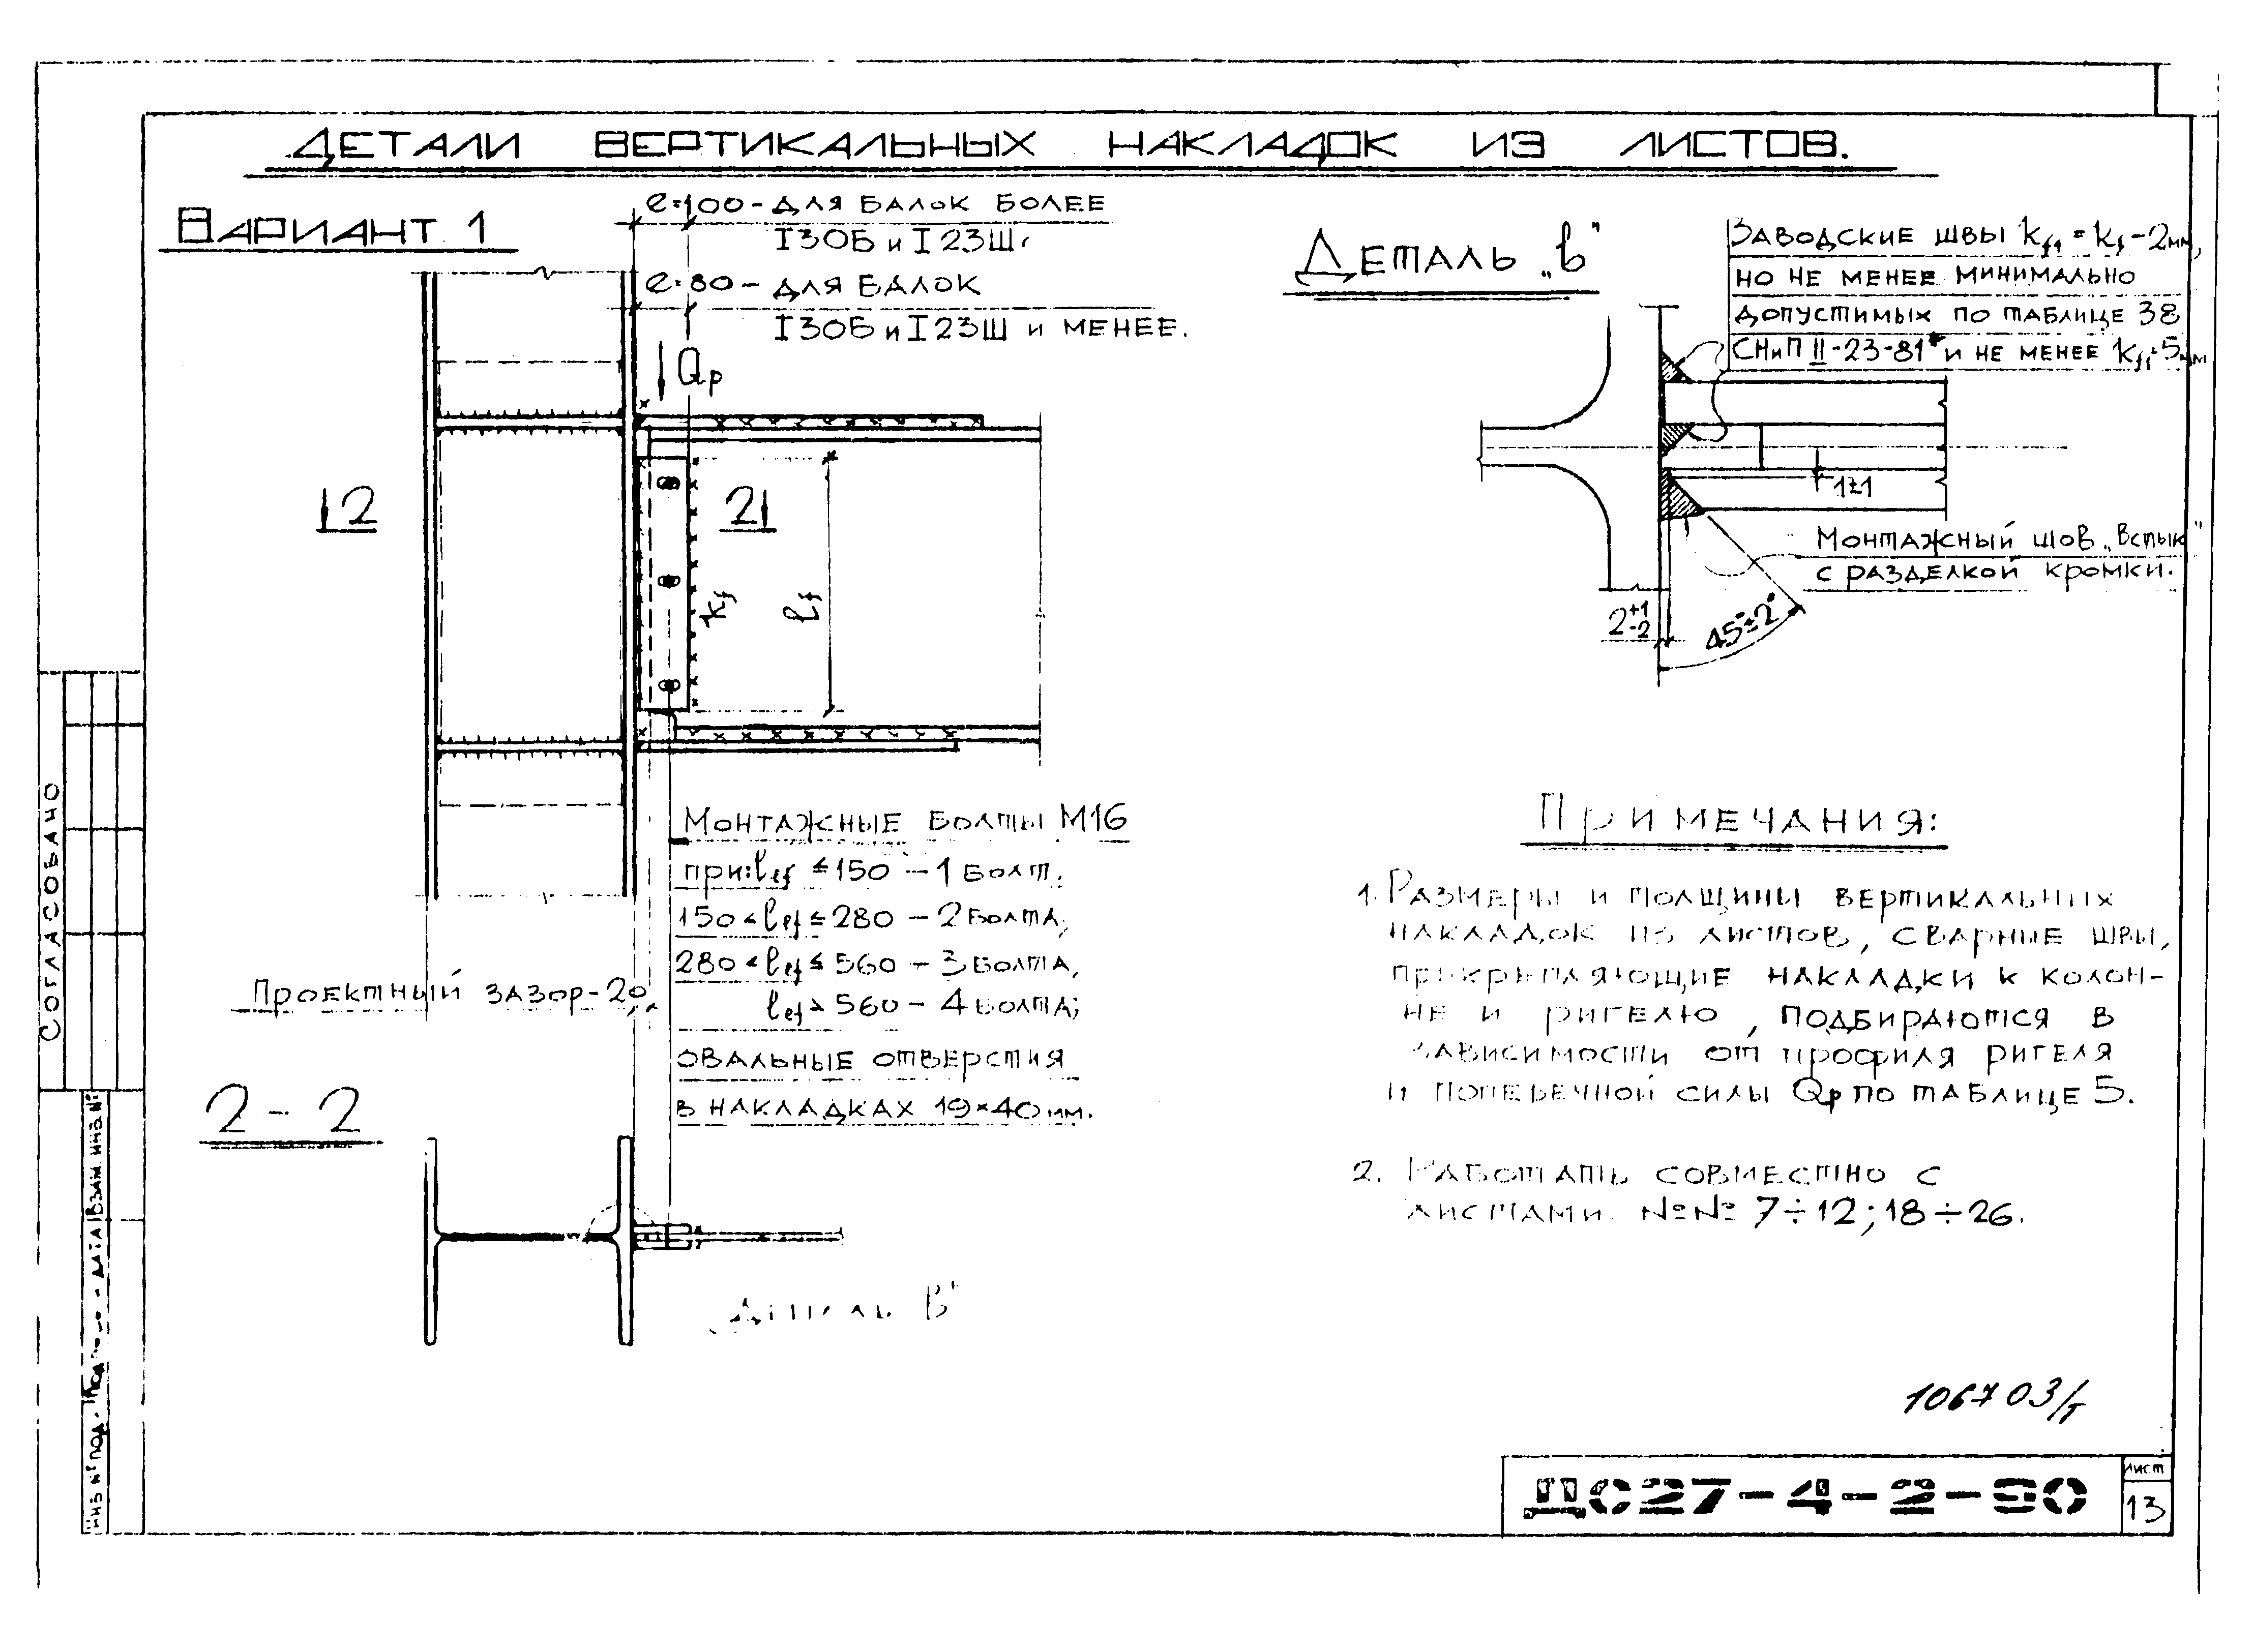 ДЕТАЛИ ВЕРТИКАЛЬНЫХ НАКЛАДОК ИЗ ЛИСТОВ.
ВАРИАНТ 1
e=100 - ДЛЯ БАЛОК БОЛЕЕ
I30Б и I23Ш,
e=80 - ДЛЯ БАЛОК
I30Б и I23Ш И МЕНЕЕ.
Qр
2
2
kf
lf
МОНТАЖНЫЕ БОЛТЫ М16
при: lef ≤ 150 - 1 БОЛТ,
150 < lef ≤ 280 - 2 БОЛТА,
280 < lef ≤ 560 - 3 БОЛТА,
lef > 560 - 4 БОЛТА;
ОВАЛЬНЫЕ ОТВЕРСТИЯ
В НАКЛАДКАХ 19×40 мм.
ПРОЕКТНЫЙ ЗАЗОР-20
2-2
ДЕТАЛЬ „В"
ЗАВОДСКИЕ ШВЫ kf1 = kf - 2 мм,
НО НЕ МЕНЕЕ МИНИМАЛЬНО
ДОПУСТИМЫХ ПО ТАБЛИЦЕ 38
СНиП II-23-81* И НЕ МЕНЕЕ kf1=5мм
1±1
МОНТАЖНЫЙ ШОВ „ВСТЫК"
С РАЗДЕЛКОЙ КРОМКИ.
2+1-2
45°±2°
ПРИМЕЧАНИЯ:
1. РАЗМЕРЫ И ТОЛЩИНЫ ВЕРТИКАЛЬНЫХ
НАКЛАДОК ИЗ ЛИСТОВ, СВАРНЫЕ ШВЫ,
ПРИКРЕПЛЯЮЩИЕ НАКЛАДКИ К КОЛОН-
НЕ И РИГЕЛЮ, ПОДБИРАЮТСЯ В
ЗАВИСИМОСТИ ОТ ПРОФИЛЯ РИГЕЛЯ
И ПОПЕРЕЧНОЙ СИЛЫ Qр ПО ТАБЛИЦЕ 5.
2. РАБОТАТЬ СОВМЕСТНО С
ЛИСТАМИ №№ 7÷12; 18÷26.
ДЕТАЛЬ „В"
СОГЛАСОВАНО
ИНВ № ПОД. ДАТА ВЗАМ. ИНВ. №
106703/т
ДС27-4-2-90
ЛИСТ
13